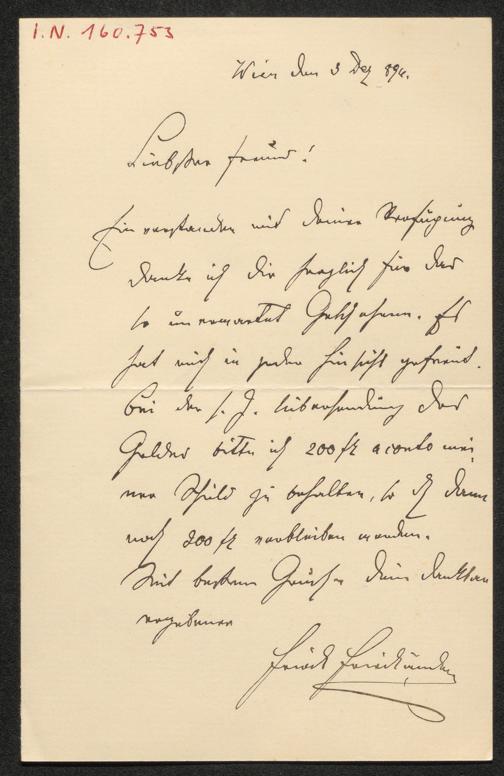 I.N. 160.753
Wien den 3 Dez 894.
Liebster Freund!
Einverstanden mit deiner Verfügung
danke ich dir herzlich für das
so unerwartet Geschehene. Es
hat mich in jeder Hinsicht gefreut.
Bei der s. Z. Übersendung des
Geldes bitte ich 200 fl a conto mei-
ner Schuld zu behalten, so dß dann
noch 200 fl verbleiben werden.
Mit bestem Gruße dein dankbar
ergebener